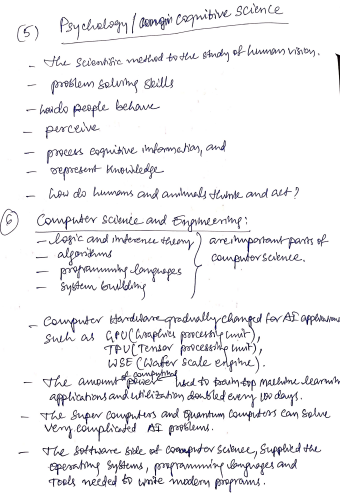 (5) Psychology / cognitive science
- The scientific method to the study of human vision.
- problem solving skills
- how do people behave
- perceive
- process cognitive information, and
- represent knowledge
- how do humans and animals think and act?
(6) Computer science and Engineering:
- logic and inference theory } are important parts of
- algorithms computer science.
- programming languages
- system building
- Computer Hardware gradually changed for AI applications
such as GPU (Graphics processing unit),
TPU (Tensor processing unit),
WSE (Wafer scale engine).
- The amount of computing power used to train top machine learning
applications and utilization doubled every 100 days.
- The Super computers and Quantum computers can solve
very complicated AI problems.
- The software side of computer science, supplied the
operating systems, programming languages and
tools needed to write modern programs.